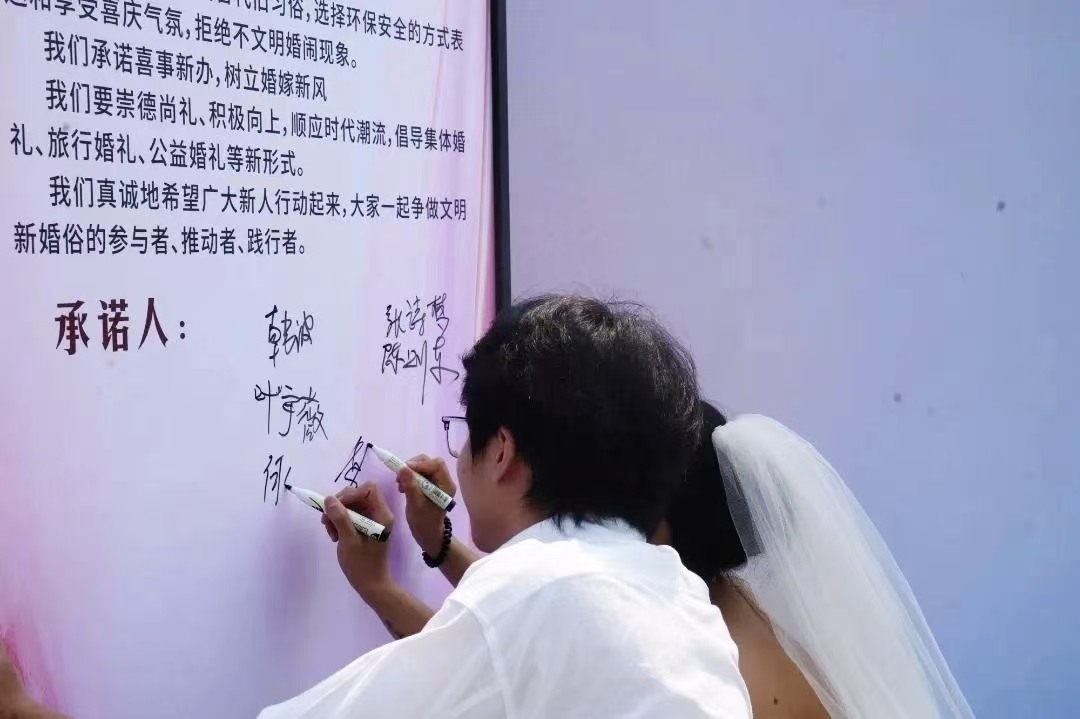 代旧习俗,选择环保安全的方式表
和享受喜庆气氛,拒绝不文明婚闹现象。
我们承诺喜事新办,树立婚嫁新风
我们要崇德尚礼、积极向上,顺应时代潮流,倡导集体婚
礼、旅行婚礼、公益婚礼等新形式。
我们真诚地希望广大新人行动起来,大家一起争做文明
新婚俗的参与者、推动者、践行者。
承诺人:
韩波
张诗梦
陈刚东
叶宇薇